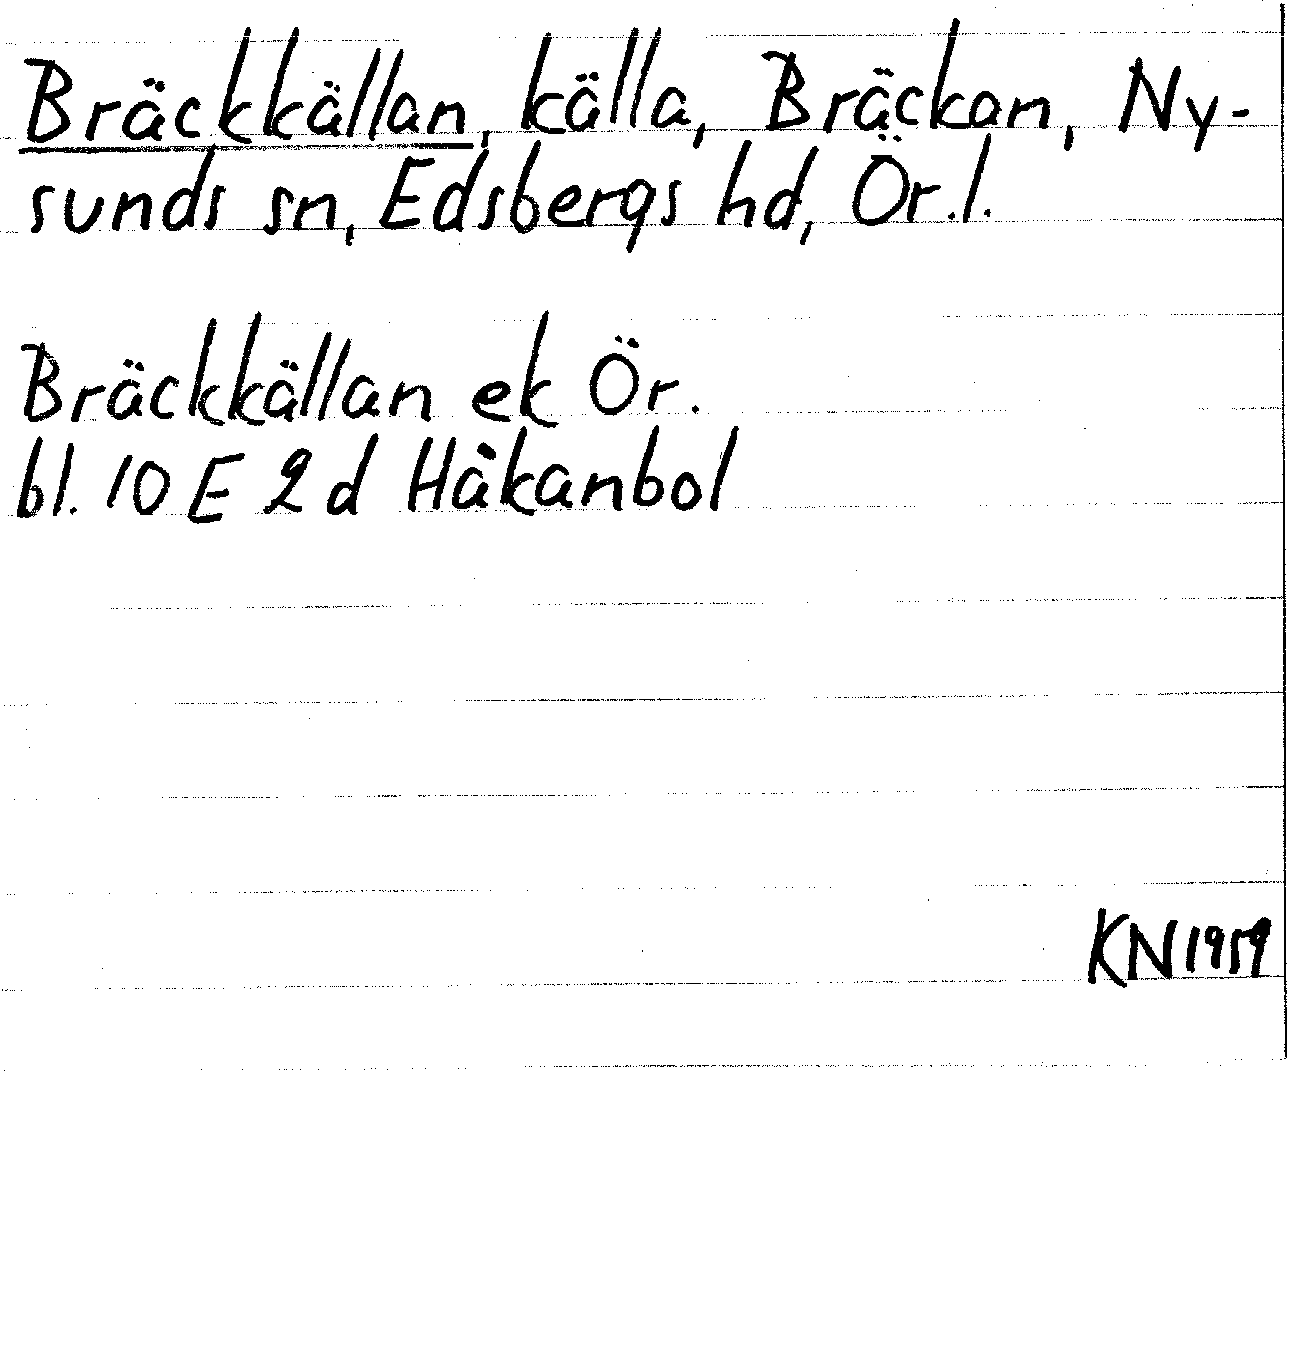 Bräckkällan, källa, Bräckan, Ny-
sunds sn, Edsbergs hd, Ör.l.
Bräckkällan ek Ör.
bl. 10 E 2 d Håkanbol
KN1959